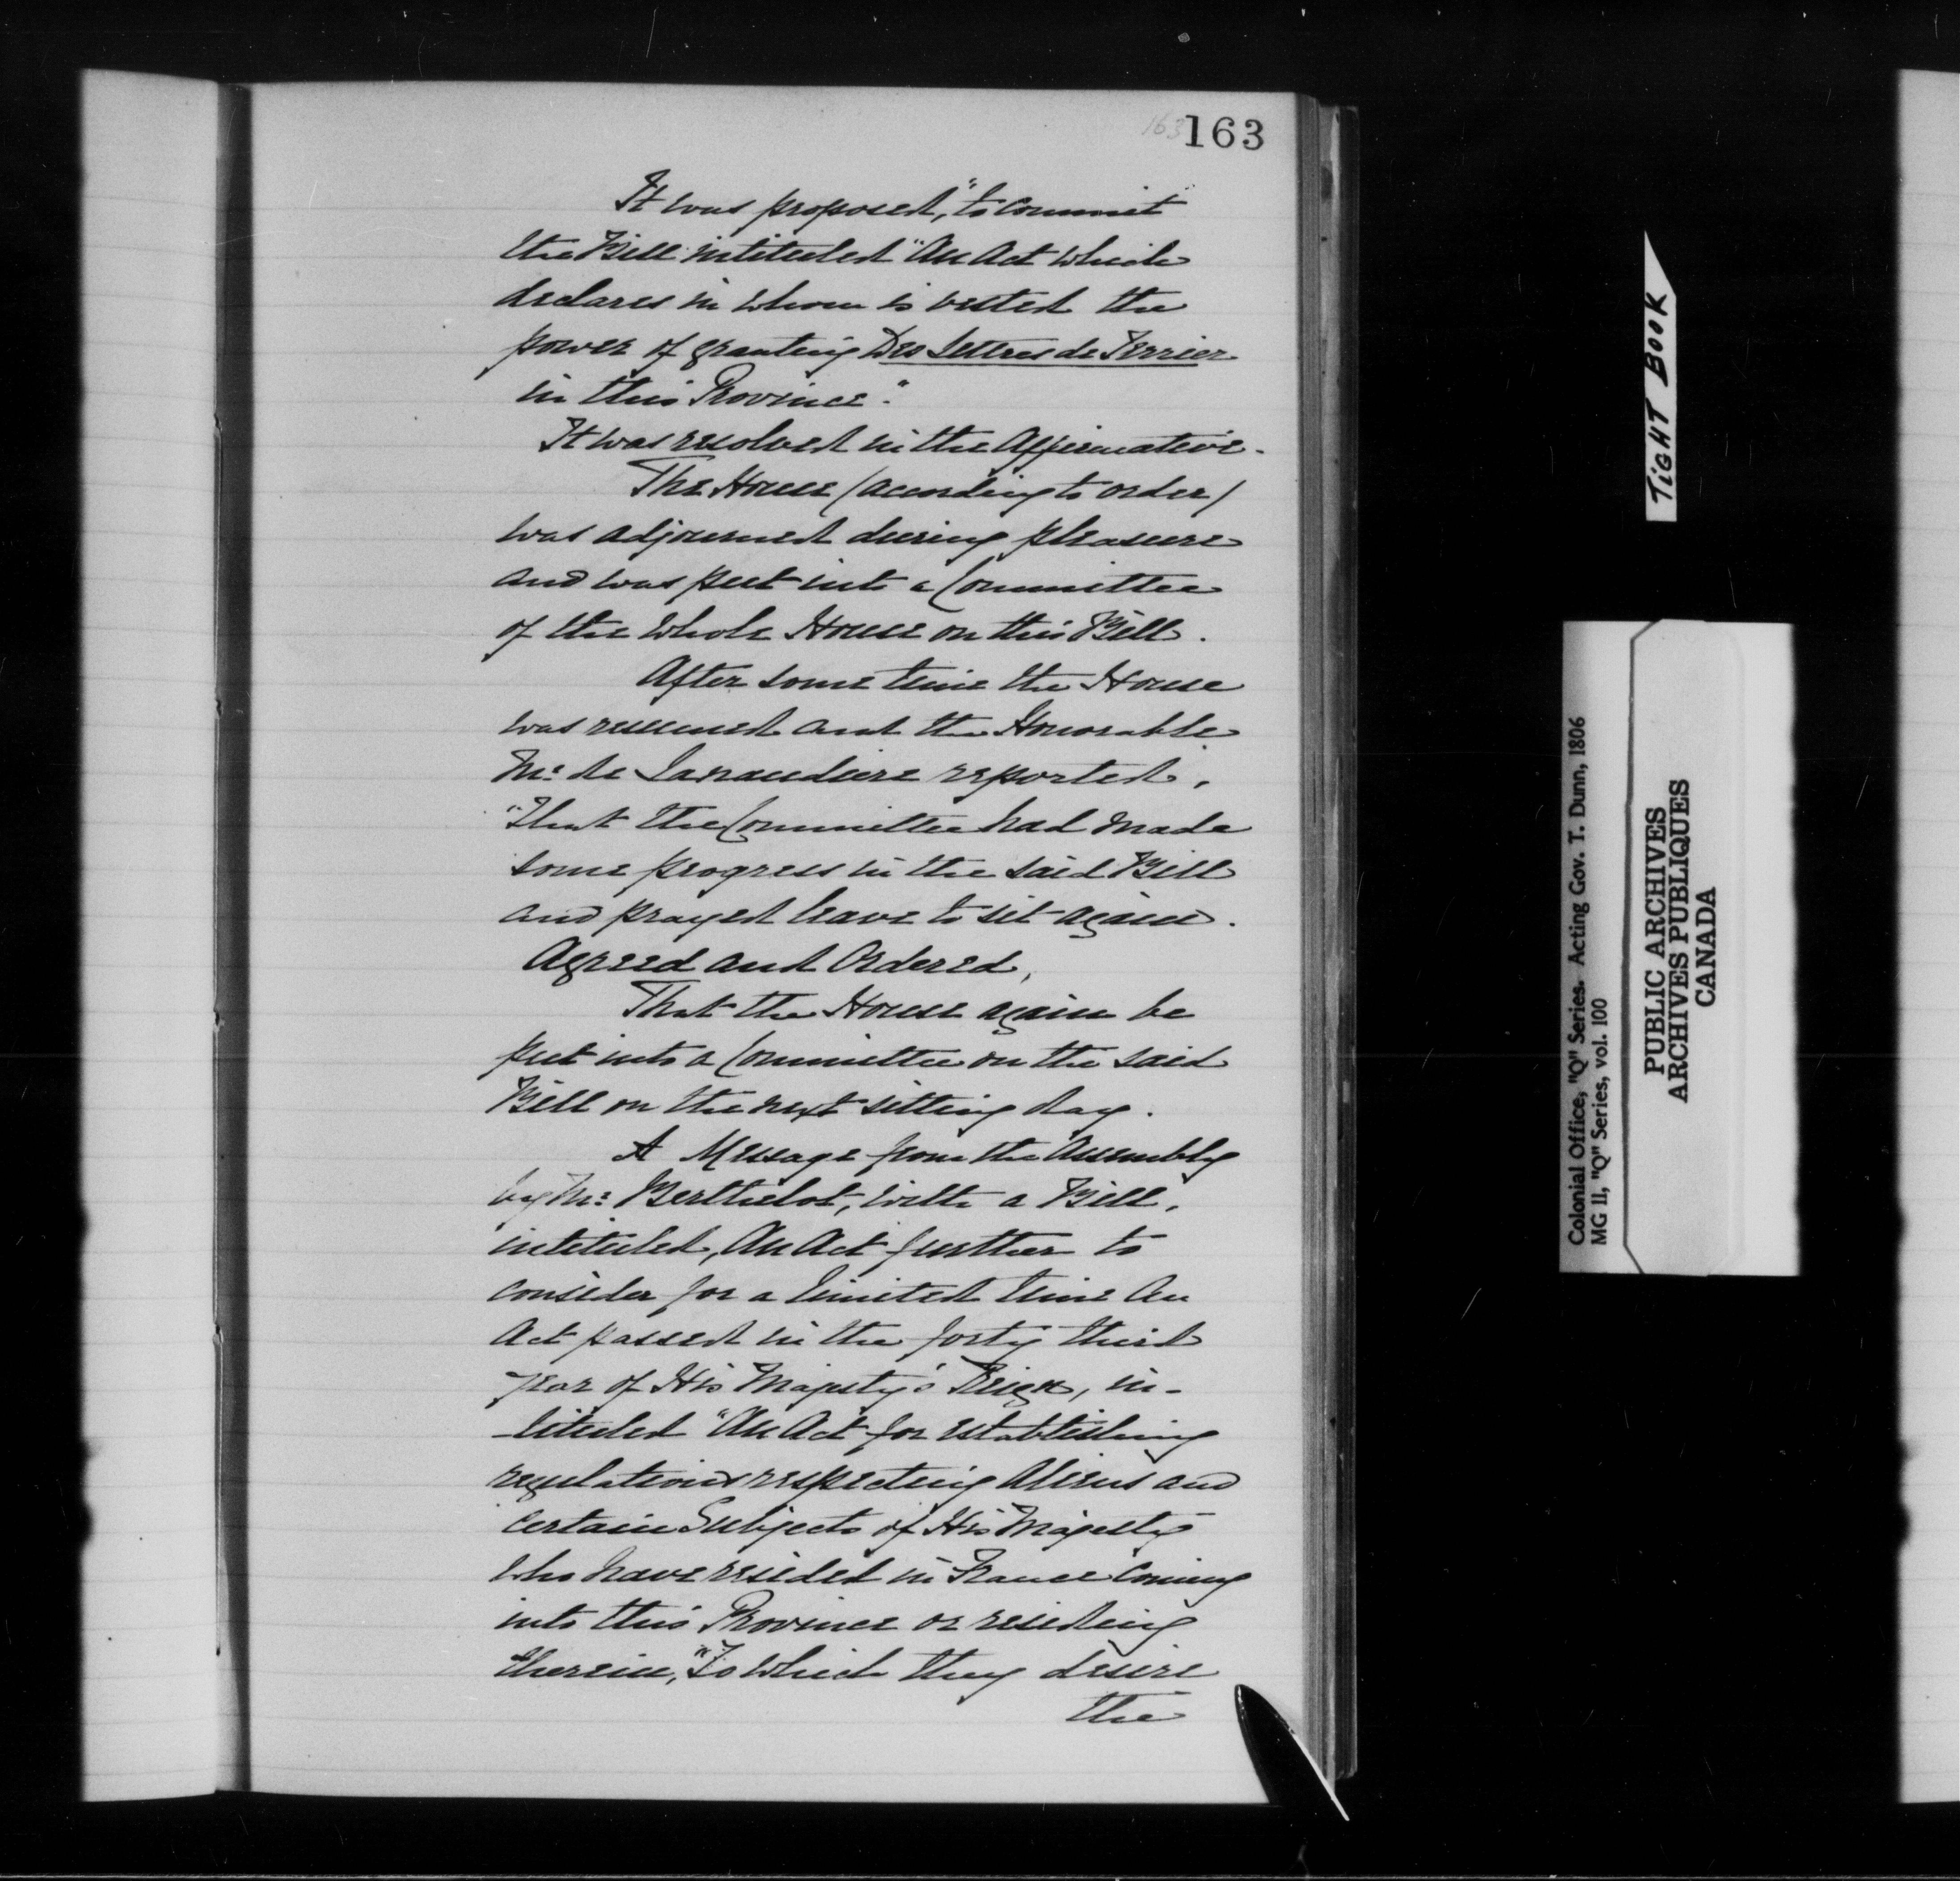 163 163
It was proposed, "to commit
the Bill intituled "An Act which
declares in whom is vested the
power of granting Des Lettres de Terrier
in this Province."
It was resolved in the Affirmative.
The House (according to order)
was adjourned during pleasure
and was put into a Committee
of the whole House on this Bill.
After some time the House
was resumed and the Honorable
Mr. de Lanaudiere reported,
"That the Committee had made
some progress in the said Bill
and prayed leave to sit again.
Agreed and Ordered,
That the House again be
put into a Committee on the said
Bill on the next sitting day.
A Message from the Assembly
by Mr. Berthelot, with a Bill,
intituled, An Act further to
consider for a limited time An
Act passed in the forty third
year of His Majesty's Reign, in-
-tituled "An Act for establishing
regulations respecting Aliens and
certain Subjects of His Majesty
who have resided in France coming
into this Province or residing
therein," To which they desire
the
TIGHT BOOK
Colonial Office, "Q" Series. Acting Gov. T. Dunn, 1806
MG 11, "Q" Series, vol. 100
PUBLIC ARCHIVES
ARCHIVES PUBLIQUES
CANADA